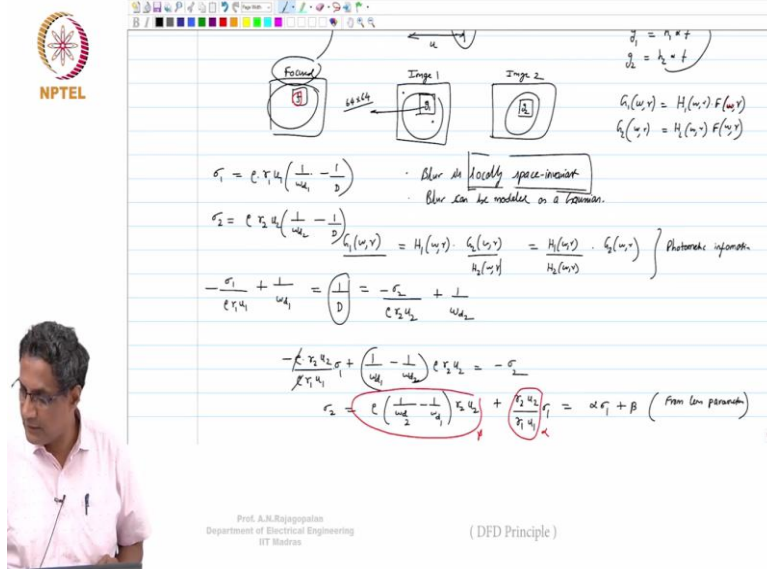 Page Width
B I
NPTEL
u
g₁ = h₁ * f
g₂ = h₂ * f
Focused
Image 1
Image 2
f
64×64
g₁
g₂
G₁(w,v) = H₁(w,v) F(w,v)
G₂(w,v) = H₂(w,v) F(w,v)
σ₁ = ρ·r₁u₁(1/wd₁ - 1/D)
· Blur is locally space-invariant
· Blur can be modeled as a Gaussian.
σ₂ = ρ r₂u₂(1/wd₂ - 1/D)
G₁(w,v) = H₁(w,v) · G₂(w,v)/H₂(w,v) = H₁(w,v)/H₂(w,v) · G₂(w,v) } Photometric information
-σ₁/ρr₁u₁ + 1/wd₁ = 1/D = -σ₂/ρr₂u₂ + 1/wd₂
-ρ·r₂u₂/ρr₁u₁ σ₁ + (1/wd₁ - 1/wd₂) ρ r₂u₂ = -σ₂
σ₂ = ρ(1/wd₂ - 1/wd₁) r₂u₂ + r₂u₂/r₁u₁ σ₁ = ασ₁ + β (From lens parameters)
α
Prof. A.N.Rajagopalan
Department of Electrical Engineering
IIT Madras
( DFD Principle )